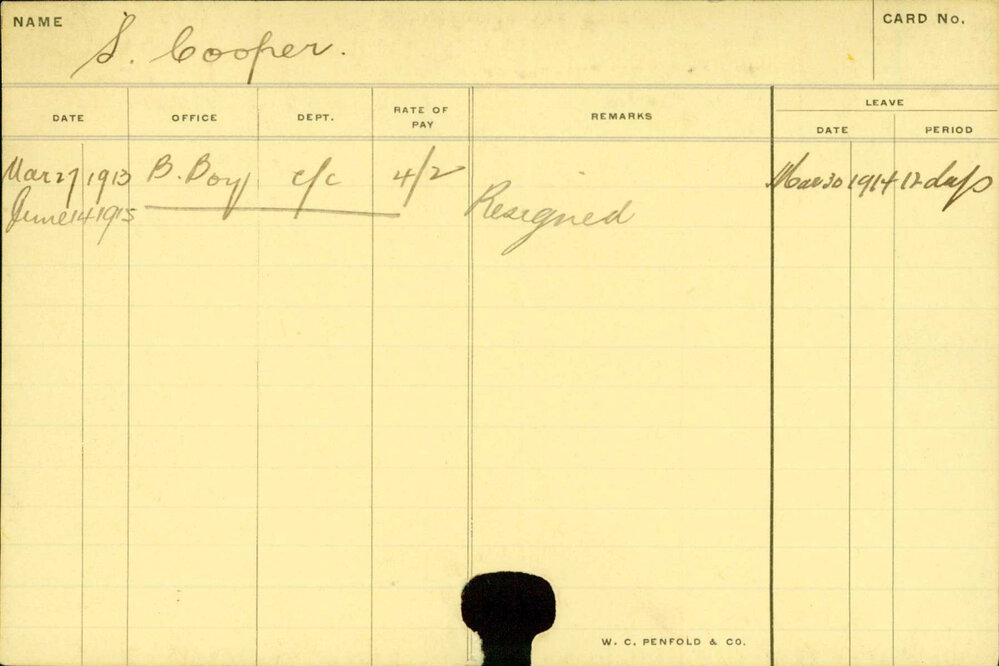 NAME S. Cooper. CARD No.
DATE OFFICE DEPT. RATE OF PAY REMARKS LEAVE
DATE PERIOD
Mar 27 1913 B. Boy c/c 4/2 Mar 30 1914 12 days
June 14 1915 Resigned
W. C. PENFOLD & CO.